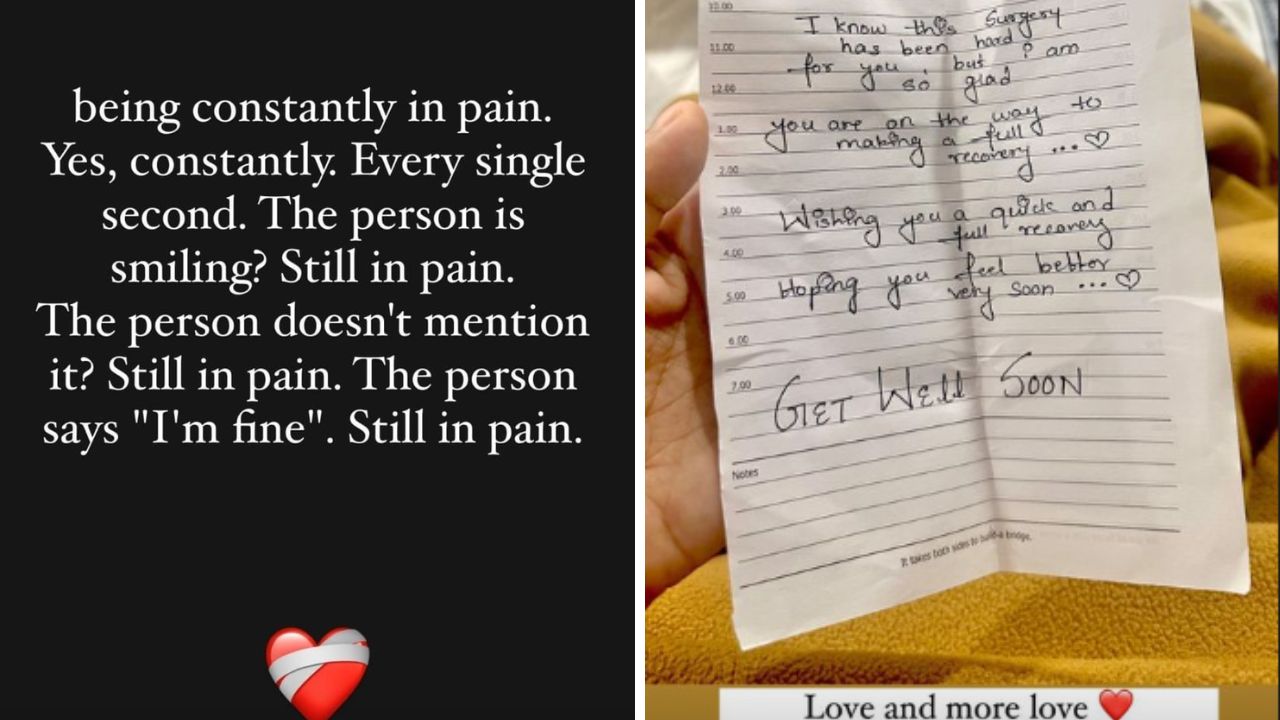 being constantly in pain.
Yes, constantly. Every single
second. The person is
smiling? Still in pain.
The person doesn't mention
it? Still in pain. The person
says "I'm fine". Still in pain.
10.00
I know this Surgery
has been hard
11.00
for you, but I am
so glad
12.00
you are on the way to
1.00
making a full
recovery ... ♡
2.00
Wishing you a quick and
3.00
full recovery
4.00
Hoping you feel better
5.00
very soon ... ♡
6.00
7.00
GET WELL SOON
Notes
It takes both sides to build a bridge.
Love and more love ❤️